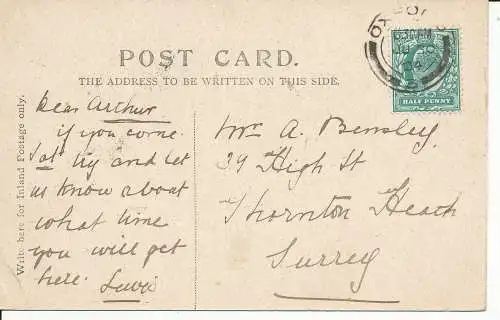 POST CARD.
THE ADDRESS TO BE WRITTEN ON THIS SIDE.
Write here for Inland Postage only.
HALF PENNY
Dear Arthur
if you come
Sat try and let
us know about
what time
you will get
here. Lewis
Mr A. Bensley
39 High St
Thornton Heath
Surrey